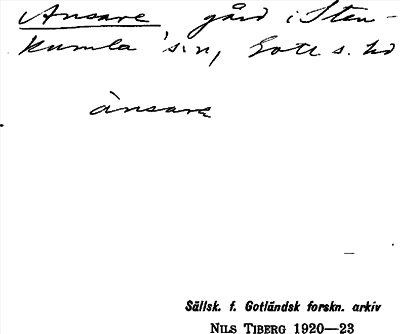 Ansare gård i Sten-
kumla s:n, Gotl. s. hd
ànsarę
Sällsk. f. Gotländsk forskn. arkiv
NILS TIBERG 1920—23